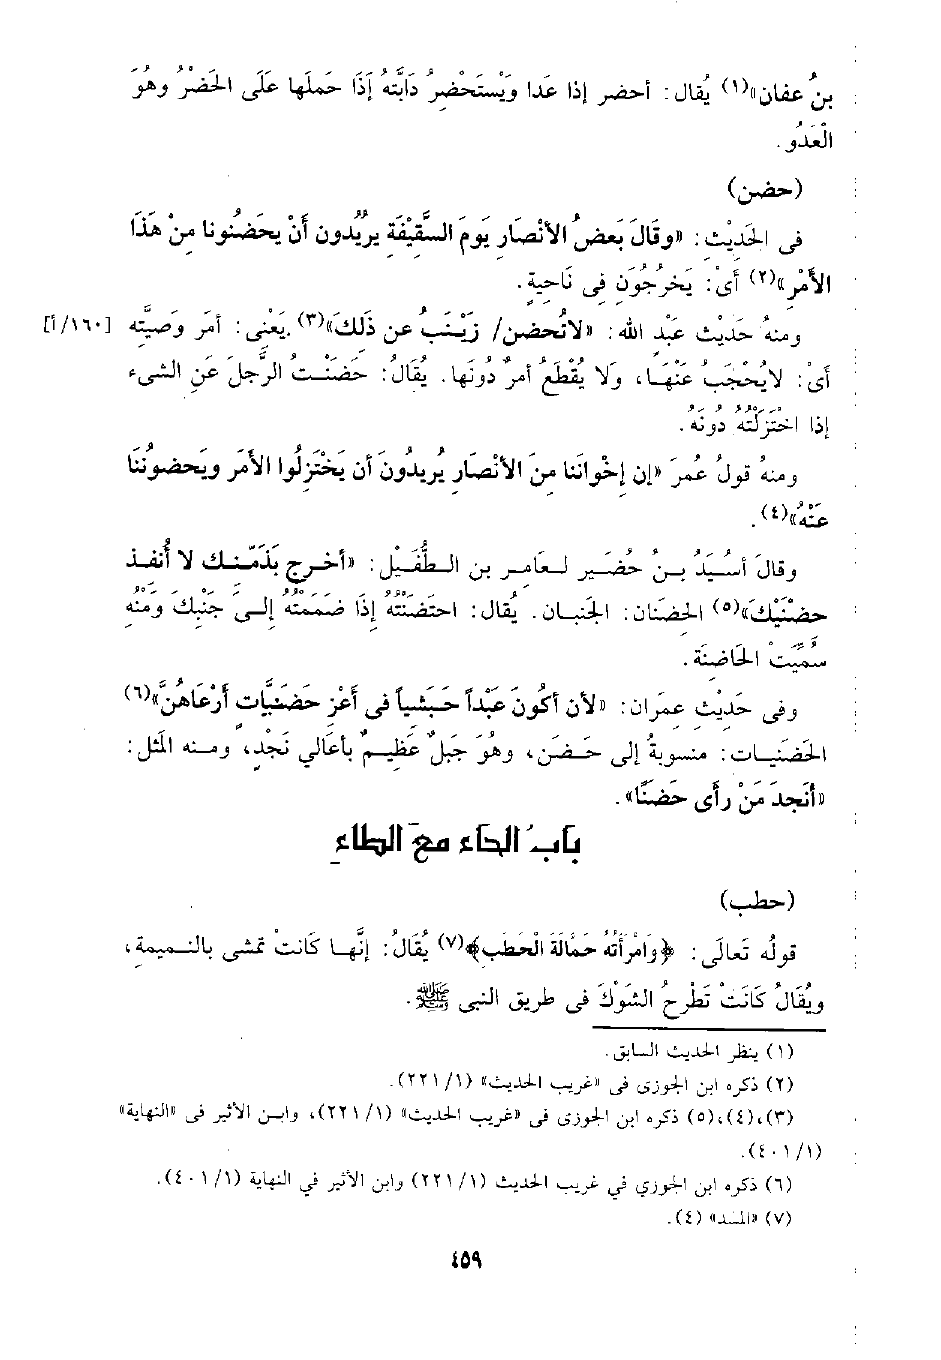 بنُ عفان»(١) يُقال: أحضر إذا عَدا ويَسْتَحْضِرُ دَابَّتهُ إذَا حَملها عَلَى الحَضْرُ وهُوَ
الْعَدُو.
(حضن)
فى الحَديْث: «وقَالَ بَعضُ الأنْصَار يَومَ السَّقِيفَةِ يرُيْدُون أنْ يحَضُنُونا مِنْ هَذَا
الأمْرِ»(٢) أىْ: يَخرجُون فِى نَاحِيةٍ.
ومنهُ حَديْث عَبْد الله: «لاتُحضن/ زَيْنَبُ عن ذَلكَ»(٣).يَعْنِى: أمرَ وَصيَّته [١٦٠/أ]
أىْ: لايُحْجَبُ عَنْهَا، ولَا يُقْطَعُ أمرٌ دُونَها. يقُالُ: حَضَنْتُ الرجَّلَ عَنِ الشىء
إذا اخْتزَلْتهُ دونَهُ.
ومنهُ قولُ عُمرَ «إن إخْوانَنا مِنَ الأنْصَار يُريدُونَ أن يَخْتزِلُوا الأمَر ويَحضوُننَا
عَنْهُ»(٤).
وقالَ أسُيَدُ بنُ حُضَير لعَامِر بن الطُّفَيْل: «أخرج بَذمَّتك لا أُنفذ
حضْنَيْكَ»(٥) الحضنَان: الجَنبان. يقُال: احتَضنْتهُ إذَا ضَممتهُ إلىَ جَنبكَ ومنْهُ
سمُيِّت الحَاضِنَة.
وفى حَدِيْثِ عمِران: «لأن أكوُنَ عَبْداً حَبَشياً فى أَعْنزٍ حَضَنيَّات أَرْعَاهُنَّ»(٦)
الحَضَنيات: منسوبةُ إلى حَضَن، وهُوَ جَبلٌ عَظِيمٌ بأعَالي نَجْدٍ، ومنه المَثل:
«أنَجدَ مَنْ رأى حَضنًا».
بَابُ الحَاءِ مَعَ الطاءِ
(حطب)
قولُه تَعالَى: ﴿وَامْرَأتُهُ حَمَّالَةَ الْحَطَبِ﴾(٧) يُقَالُ: إنَّها كَانَتْ تمَشى بالنميمةِ،
ويُقَالُ كَانَتْ تَطْرحُ الشَوْكَ فى طريق النبى ﷺ.
(١) ينظر الحديث السابق.
(٢) ذكره ابن الجوزى فى «غريب الحديث» (١/ ٢٢١).
(٣)،(٤)،(٥) ذكره ابن الجوزى فى «غريب الحديث» (١/ ٢٢١)، وابن الأثير فى «النهاية»
(١/ ٤٠١).
(٦) ذكره ابن الجوزي في غريب الحديث (١/ ٢٢١) وابن الأثير في النهاية (١/ ٤٠١).
(٧) «المسد» (٤).
٤٥٩